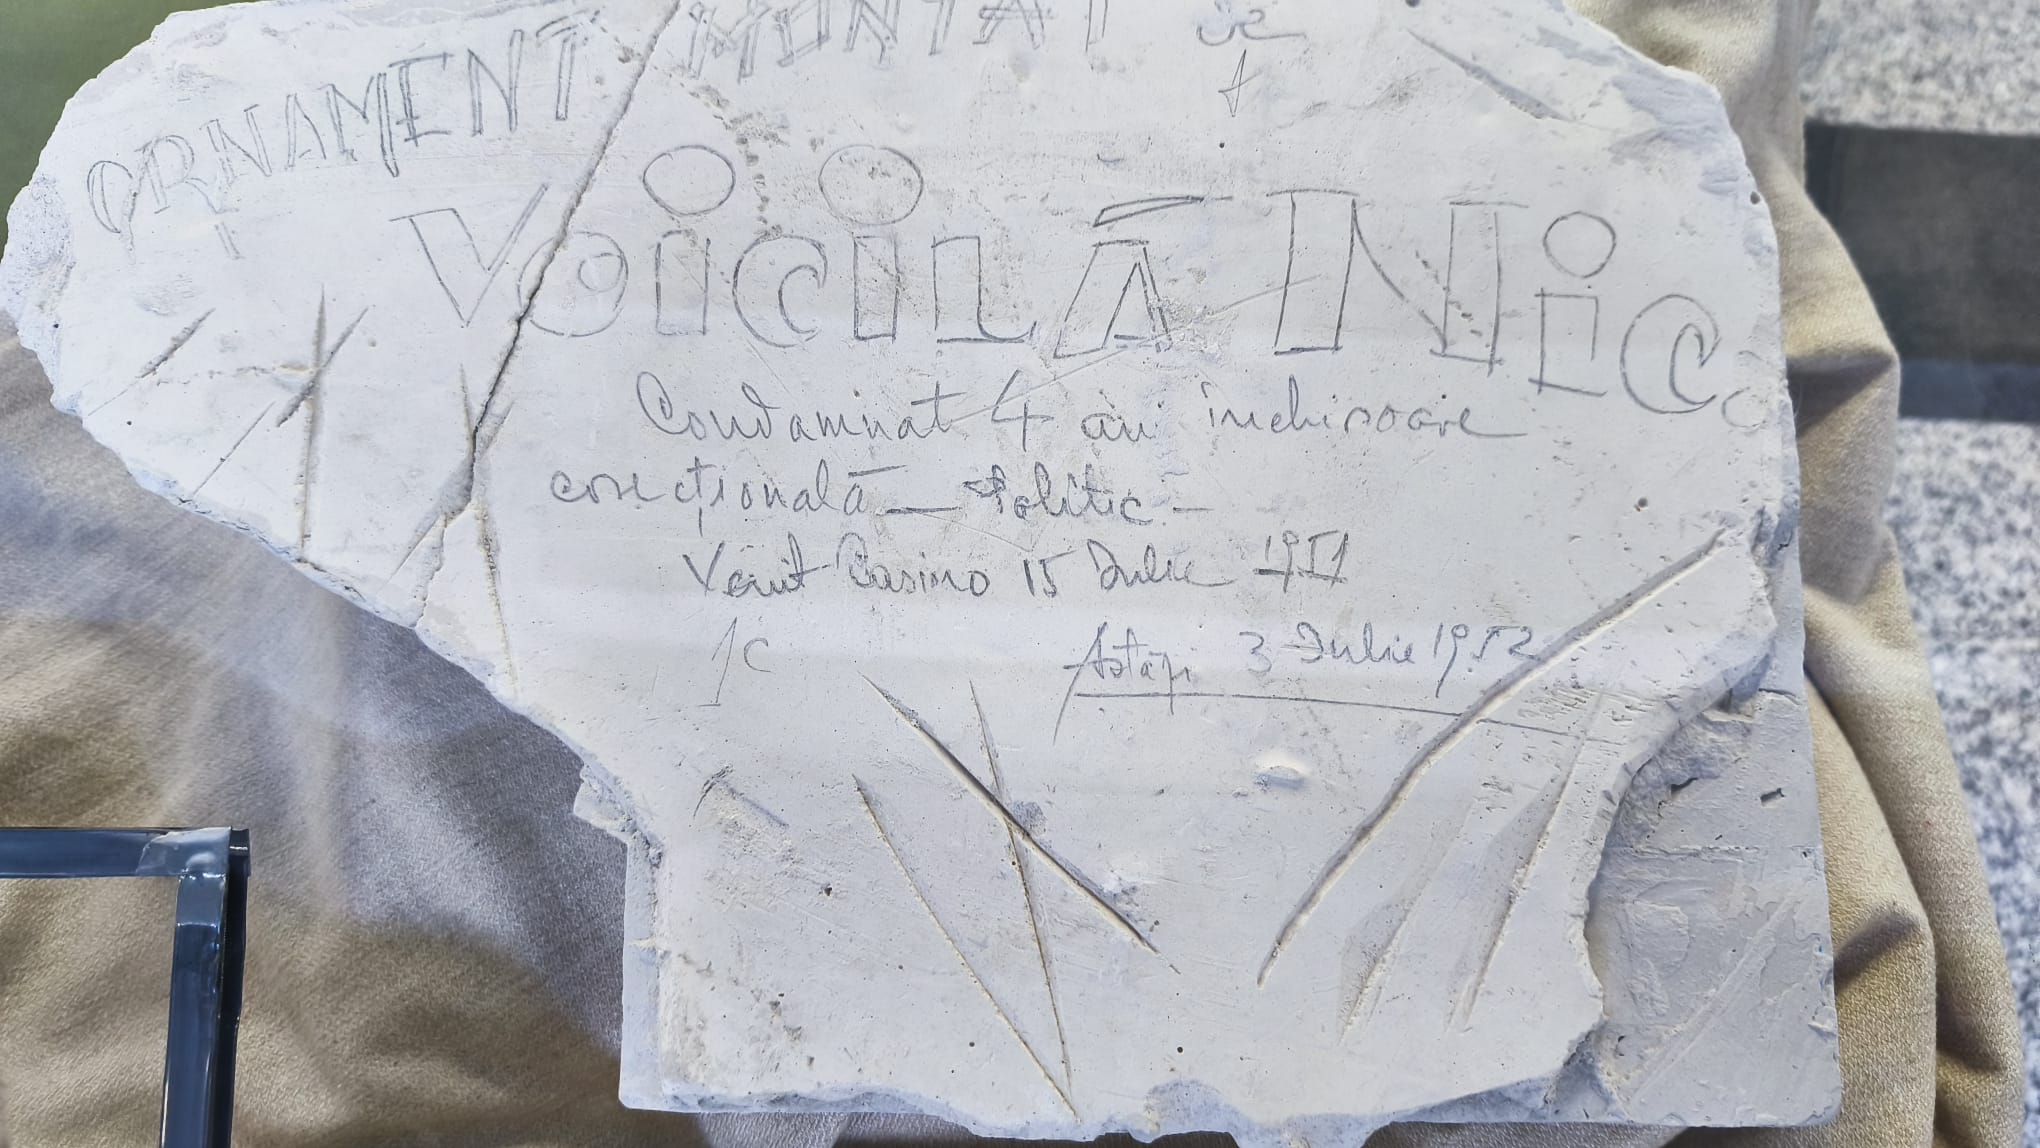 ORNAMENT MONTAT de
VOiCiLĂ Nic
Condamnat 4 ani inchisoare
corecțională — Politic —
Venit Casino 15 Iulie 1951
Astăzi 3 Iulie 1952